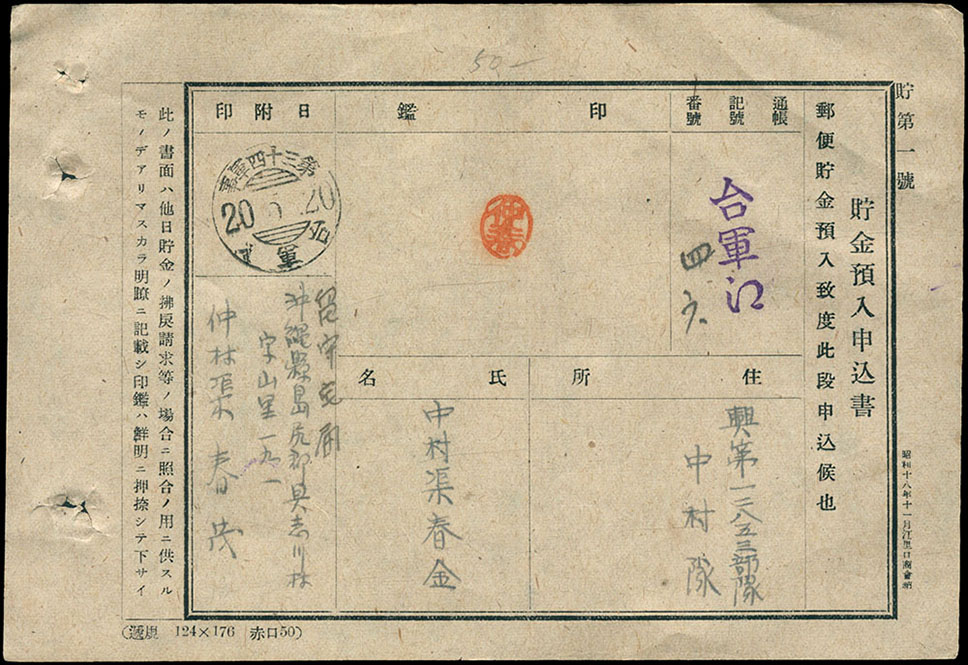 50—
貯第一號
貯金預入申込書
郵便貯金預入致度此段申込候也
昭和十八年十一月江里口商會納
通帳
記號
番號
台軍江
四
印鑑
仲春
日附印
第三十四軍事
20
20
住所
興第一二八五三部隊
中村隊
氏名
中村渠春金
留守宅
沖縄縣島尻郡具志川村
字山里一九一
仲村渠春茂
此ノ書面ハ他日貯金ノ拂戾請求等ノ場合ニ照合ノ用ニ供スル
モノデアリマスカラ明瞭ニ記載シ印鑑ハ鮮明ニ押捺シテ下サイ
124×176 赤口50)